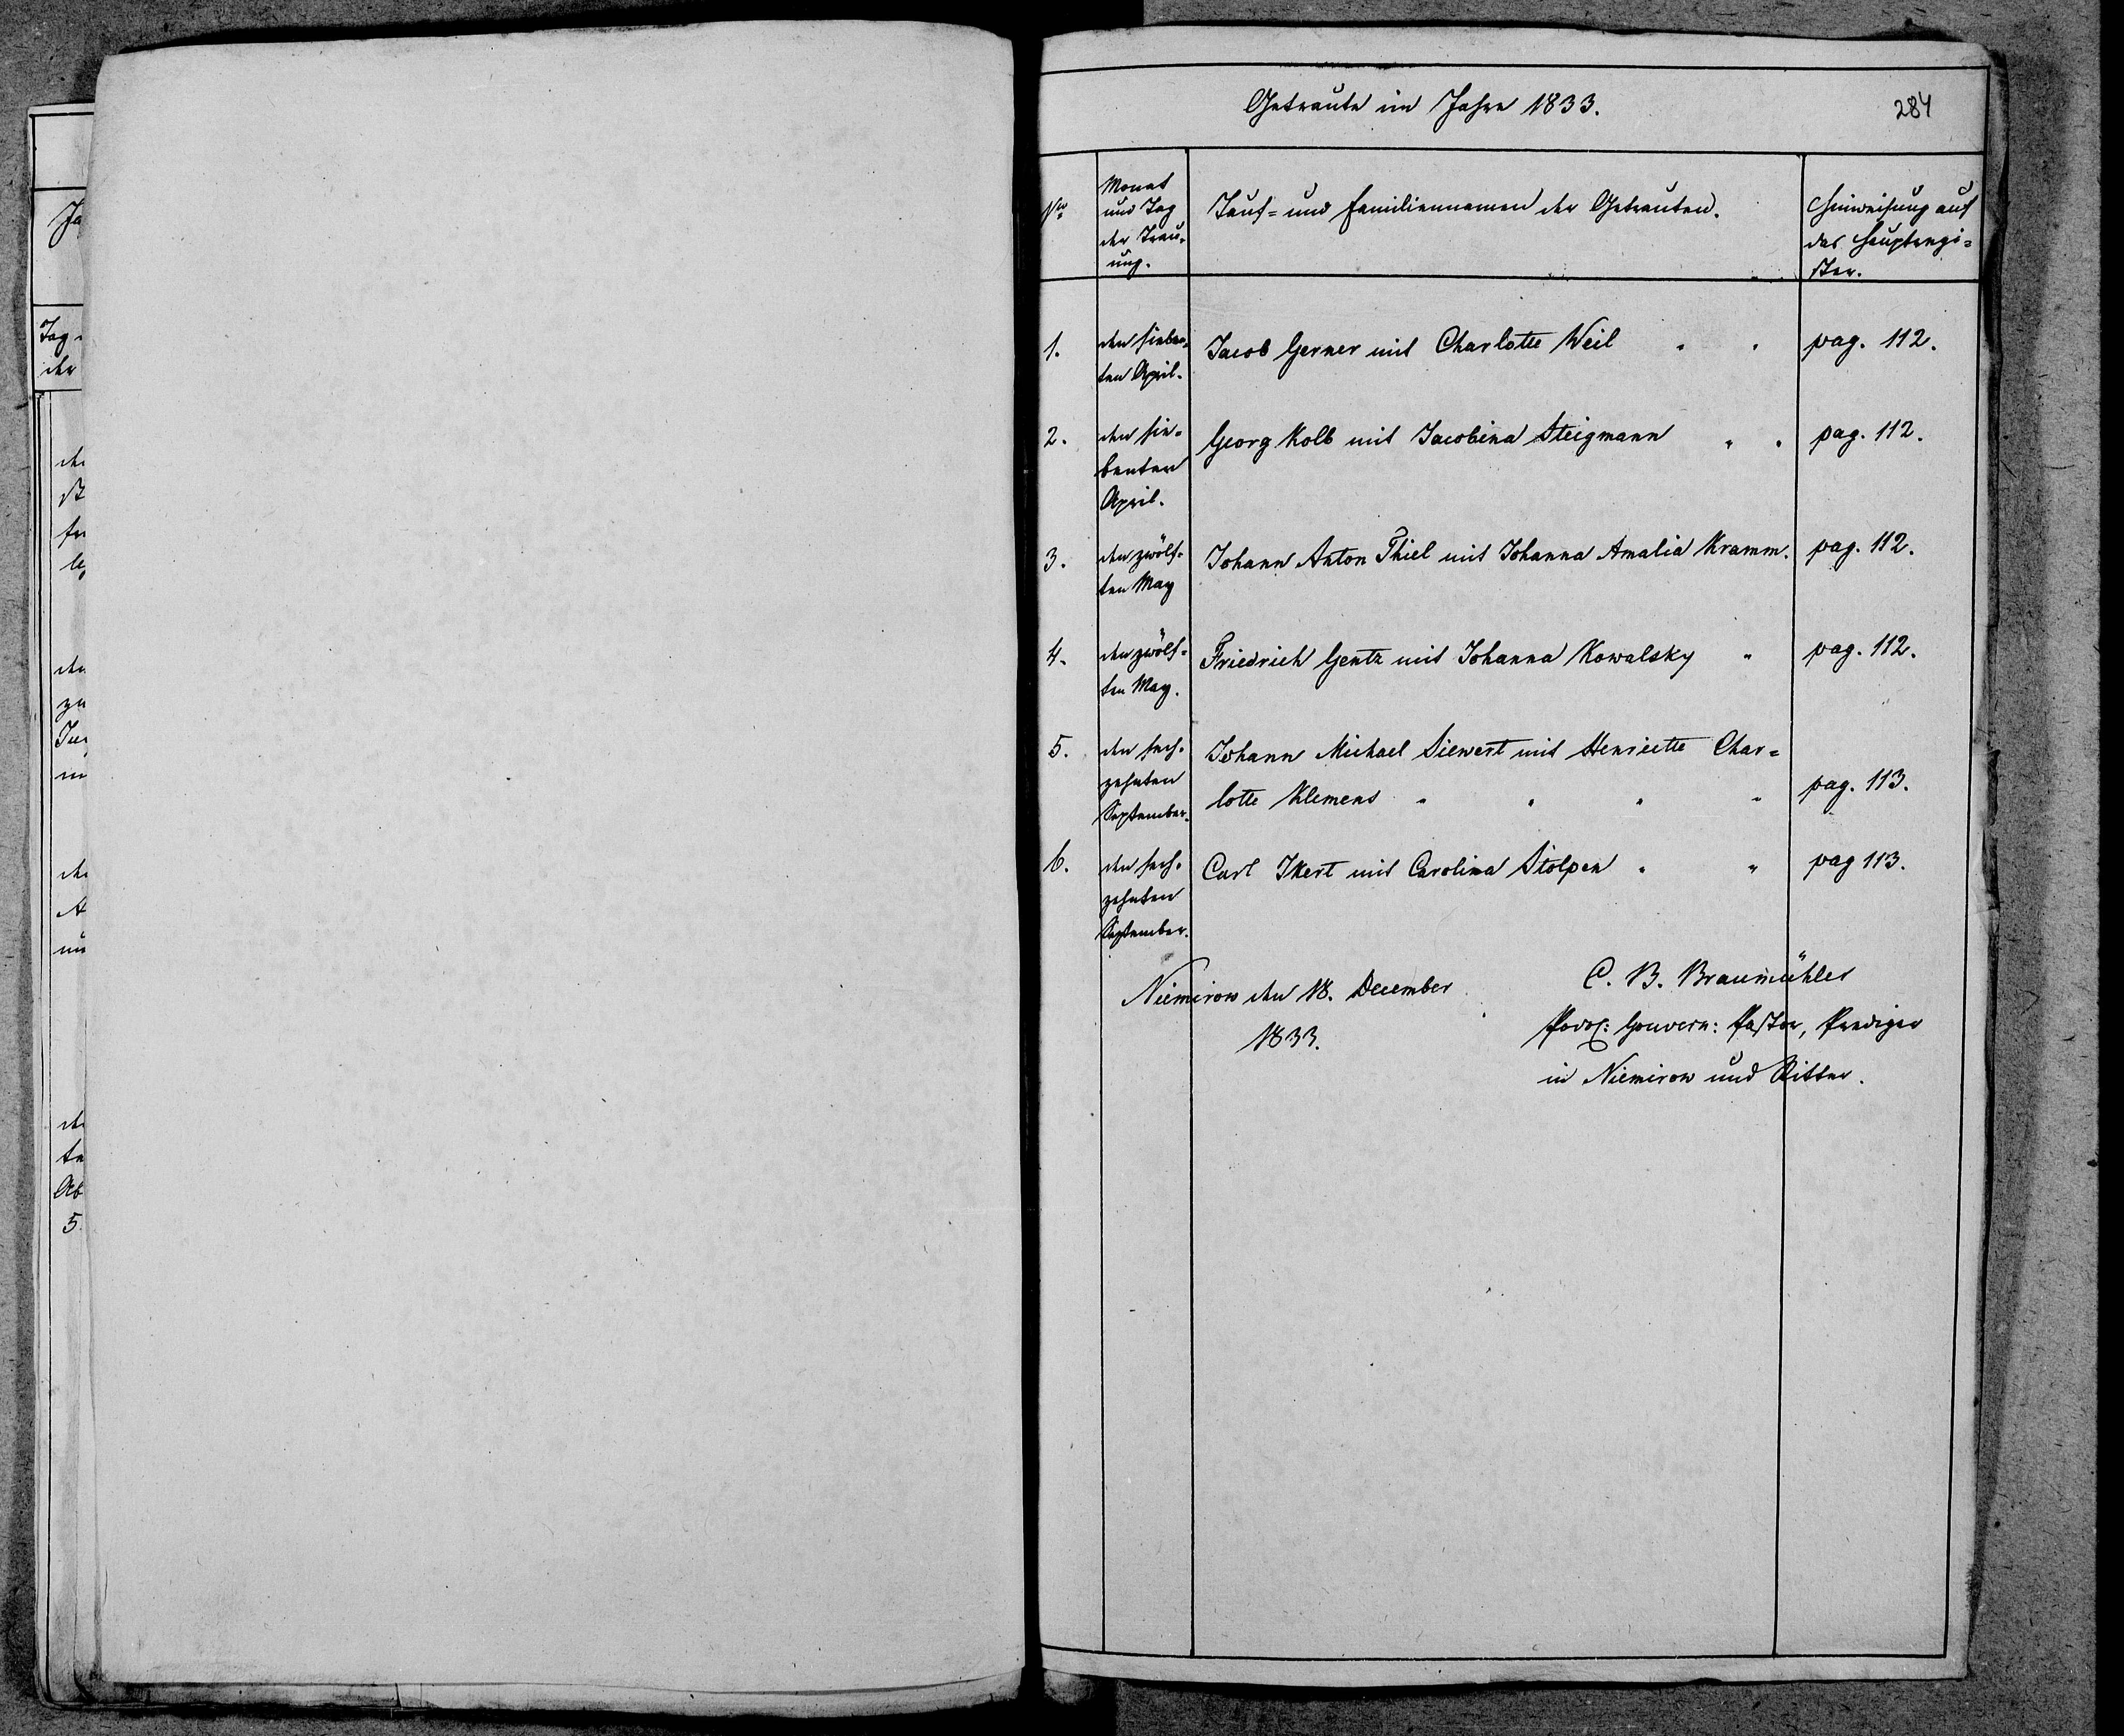 Getraute im Jahre 1833.
284
No
Monat
und Tag
der Trau-
ung.
Tauf- und Familiennamen der Getrauten.
Hinweisung auf
das Hauptregi-
ster.
1.
den sieben-
ten April.
Jacob Gerner mit Charlotte Weil " "
pag. 112.
2.
den sie-
benten
April.
Georg Kolb mit Jacobina Steigmann " "
pag. 112.
3.
den zwölf-
ten May
Johann Anton Thiel mit Johanna Amalia Kramm.
pag. 112.
4.
den zwölf-
ten May.
Friedrich Gentz mit Johanna Kowalsky "
pag. 112.
5.
den sech-
zehnten
September.
Johann Michael Siewert mit Henriette Char-
lotte Klemens " " " "
pag. 113.
6.
den sech-
zehnten
September.
Carl Ikert mit Carolina Stolpen " "
pag 113.
Niemirow den 18. December
1833.
C. B. Braumühler
Podol: Gouvern: Pastor, Prediger
in Niemirow und Ritter.